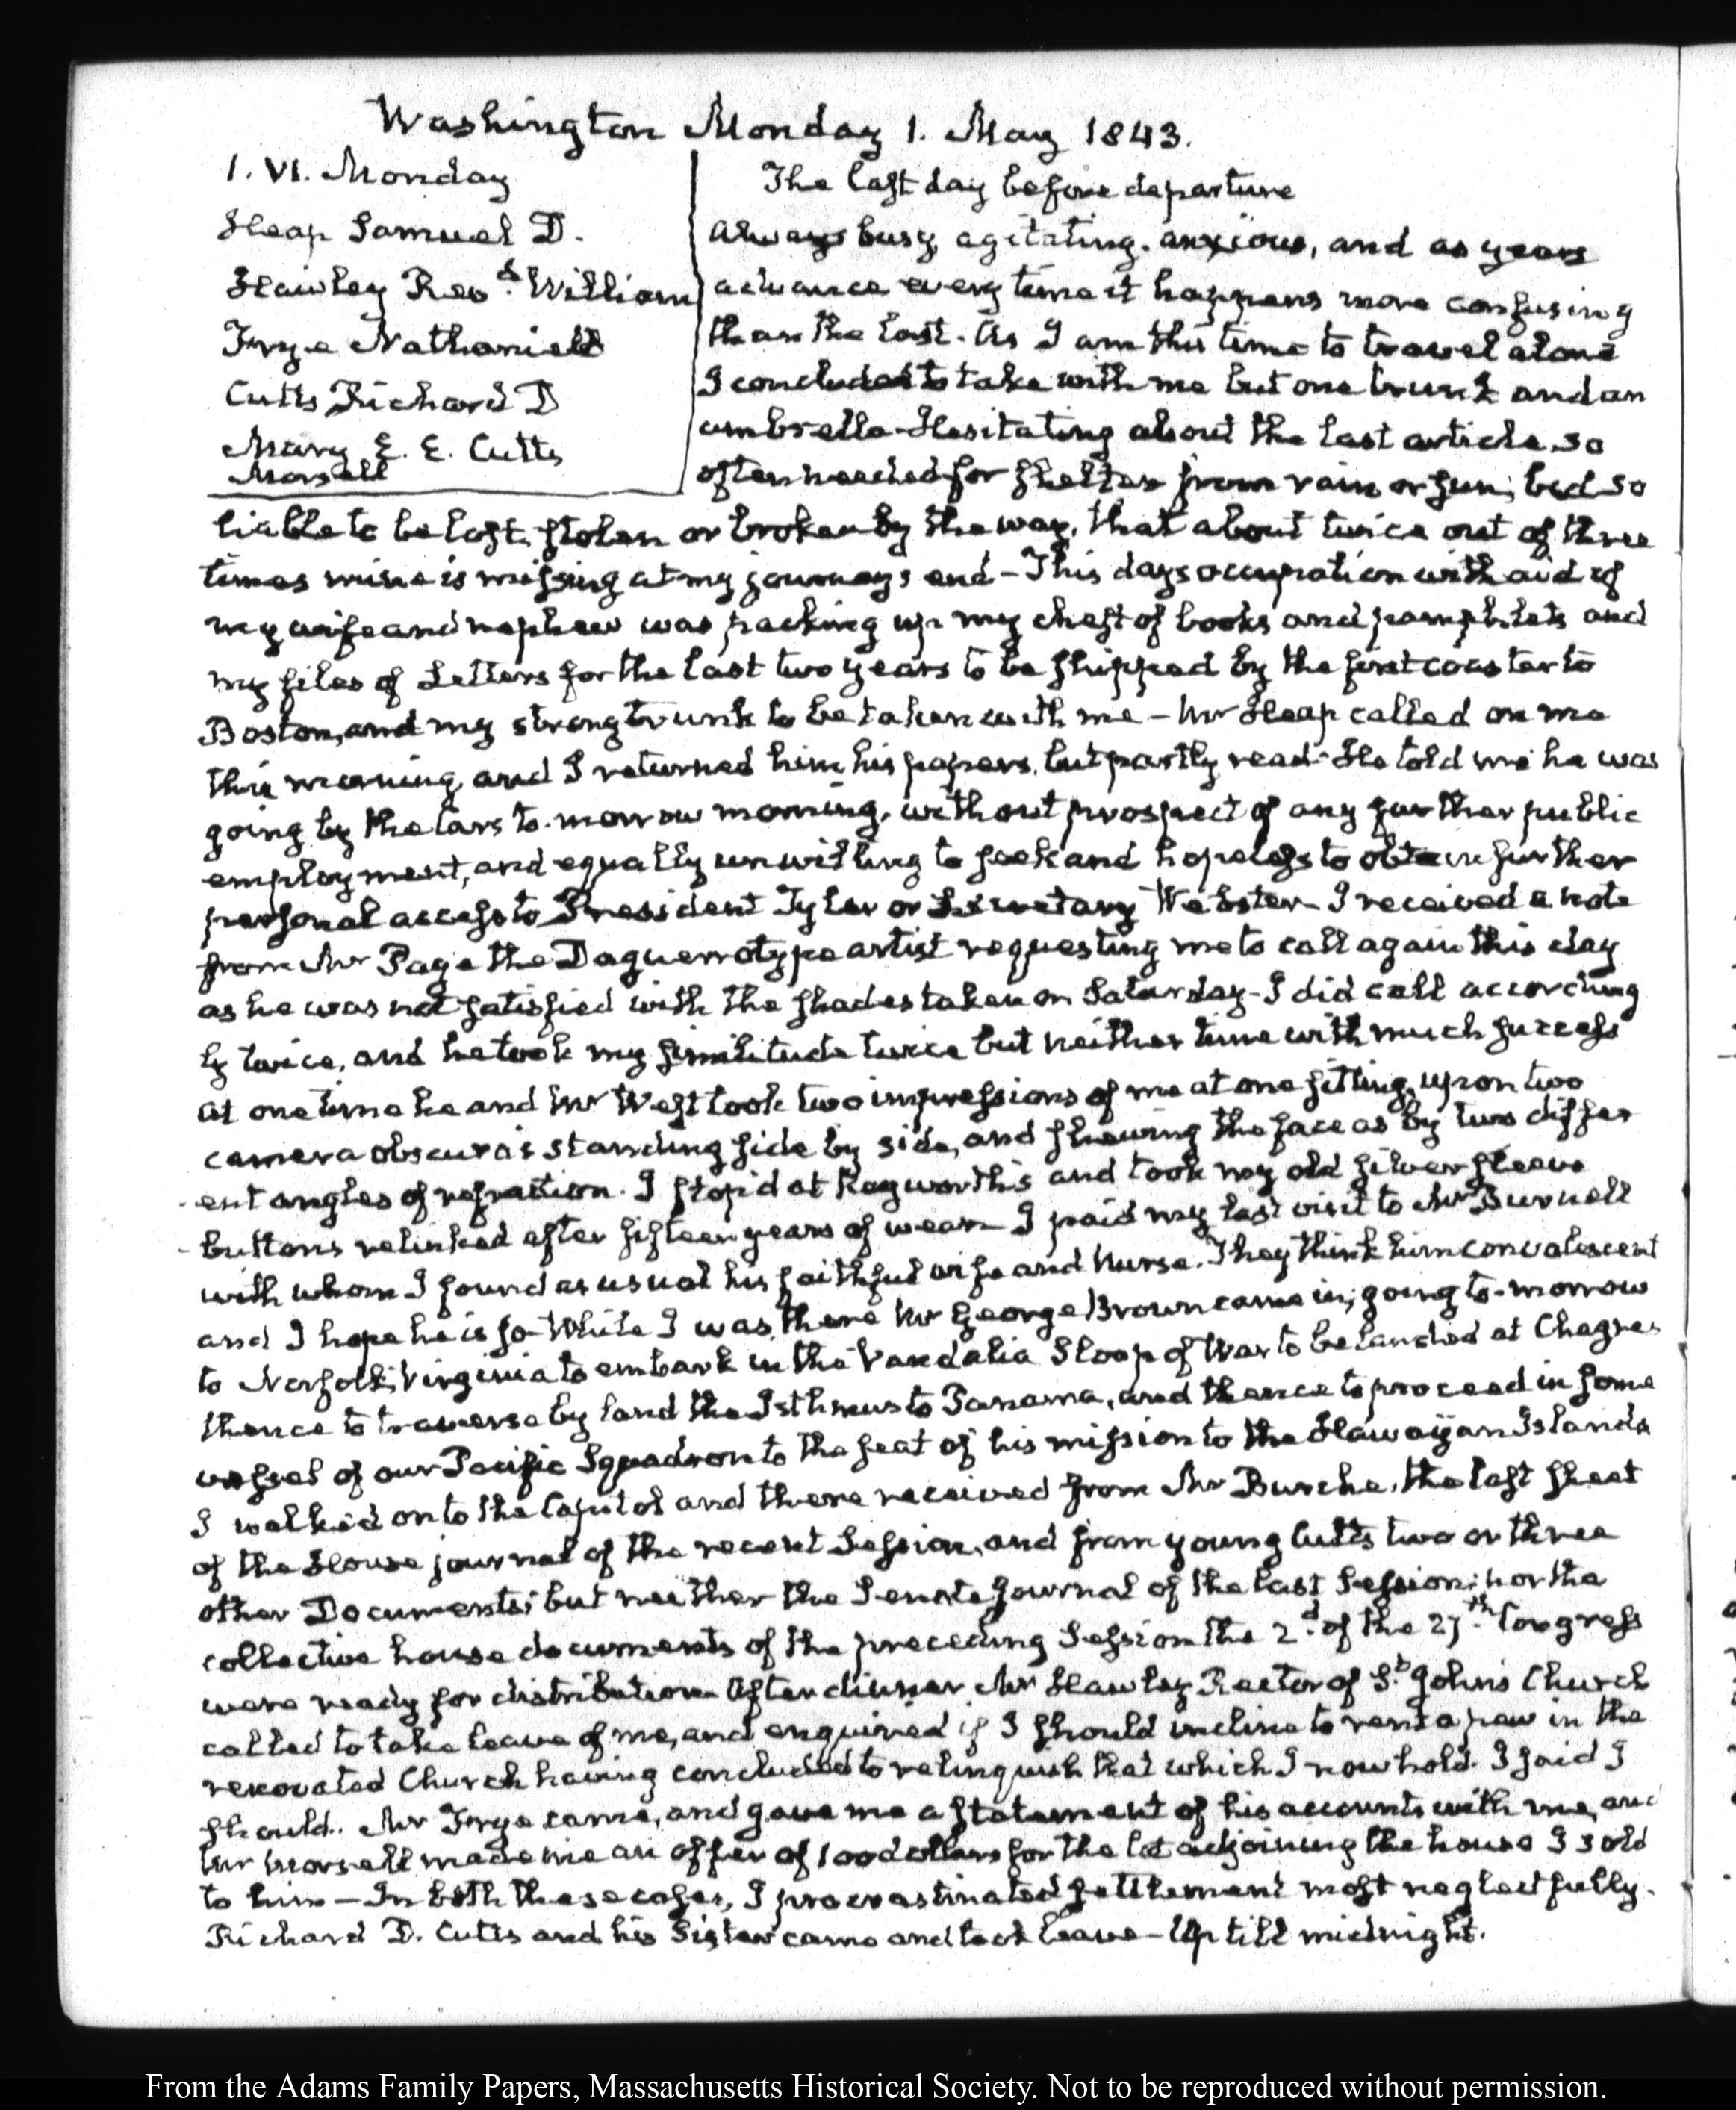 Washington Monday 1. May 1843.
1. VI. Monday
Heap Samuel D.
Hawley Revd. William
Frye Nathaniel
Cutts Richard D
Mary E. E. Cutts
Morsell
The last day before departure
always busy agitating. anxious, and as years
advance every time it happens more confusing
than the last. As I am this time to travel alone
I concluded to take with me but one trunk and an
umbrella - Hesitating about the last article, so
often needed for shelter from rain or sun; but so
liable to be lost, stolen or broken by the way, that about twice out of three
times mine is missing at my journeys end - This days occupation with aid of
my wife and nephew was packing up my chest of books and pamphlets and
my files of Letters for the last two years to be shipped by the first coaster to
Boston, and my strong trunk to be taken with me - Mr Heap called on me
this morning, and I returned him his papers, but partly read - He told me he was
going by the Cars to-morrow morning, without prospect of any further public
employment, and equally unwilling to seek and hopeless to obtain further
personal access to President Tyler or Secretary Webster - I received a note
from Mr Page the Daguerrotype artist requesting me to call again this day
as he was not satisfied with the shades taken on Saturday - I did call according
ly twice, and he took my similitude twice but neither time with much success
at one time he and Mr West took two impressions of me at one sitting, upon two
camera obscura's standing side by side, and shewing the face as by two differ
-ent angles of refraction. I stop'd at Kayworth's and took my old silver sleeve
-buttons relinked after fifteen years of wear - I paid my last visit to Mr Burnell
with whom I found as usual his faithful wife and Nurse. They think him convalescent
and I hope he is so - While I was there Mr George Brown came in; going to-morrow
to Norfolk, Virginia to embark in the Vandalia Sloop of War to be landed at Chagres
thence to traverse by land the Isthmus to Panama, and thence to proceed in some
vessel of our Pacific Squadron to the seat of his mission to the Hawaiian Islands
I walked on to the Capitol and there received from Mr Burche, the last sheet
of the House journal of the recent Session, and from young Cutts two or three
other Documents; but neither the Senate journal of the last Session; nor the
collective house documents of the preceding Session the 2d. of the 27th. Congress
were ready for distribution - After dinner Mr Hawley Rector of St. John's Church
called to take leave of me, and enquired if I should incline to rent a pew in the
renovated Church having concluded to relinquish that which I now hold. I said I
should. Mr Frye came, and gave me a statement of his accounts with me, and
Mr Morsell made me an offer of 100 dollars for the lot adjoining the house I sold
to him - In both these cases, I procrastinated settlement most neglectfully.
Richard D. Cutts and his Sister came and took leave - Up till midnight.
From the Adams Family Papers, Massachusetts Historical Society. Not to be reproduced without permission.